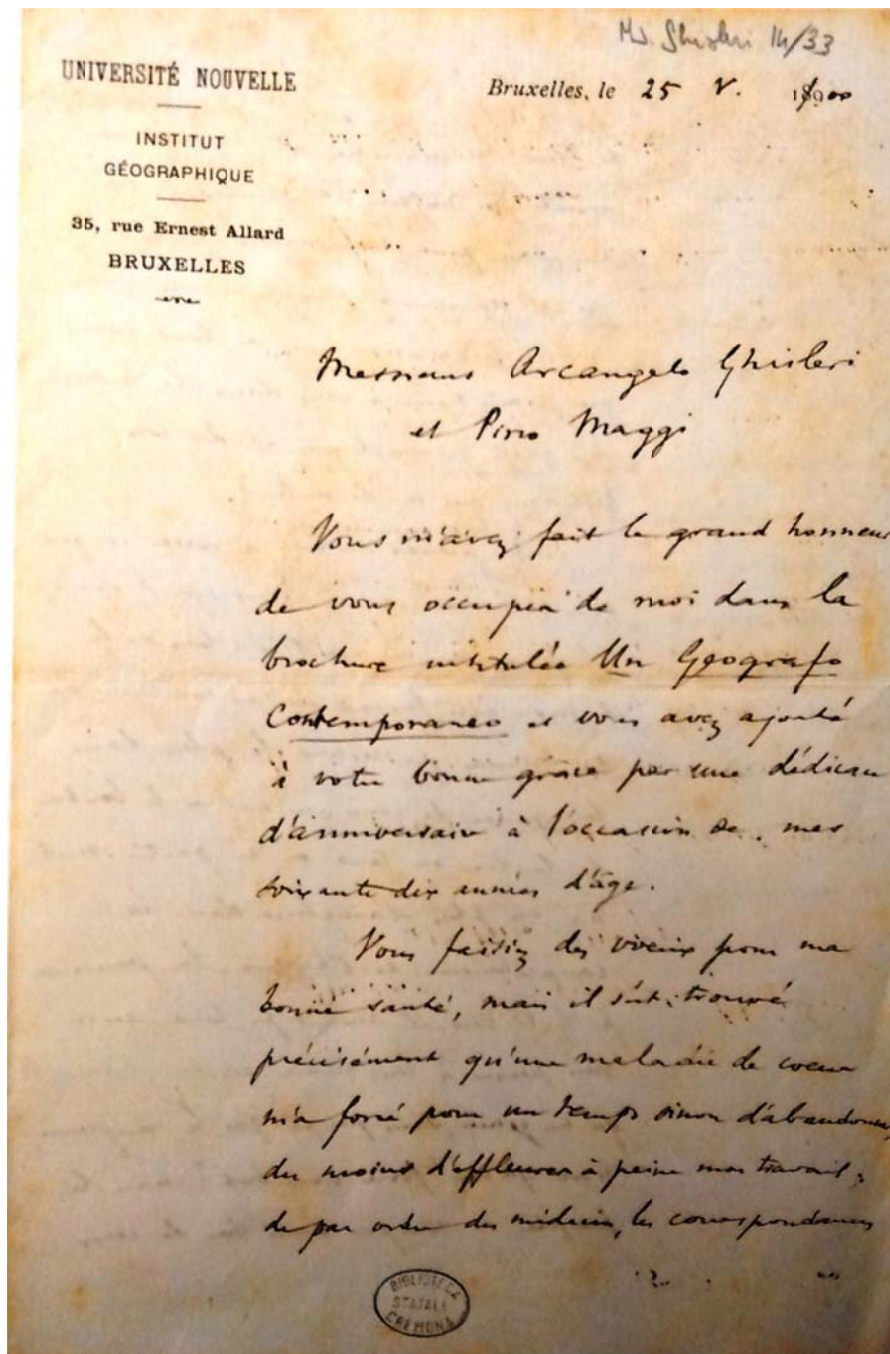 Ms. Ghisleri 14/33
UNIVERSITÉ NOUVELLE
INSTITUT
GÉOGRAPHIQUE
35, rue Ernest Allard
BRUXELLES
Bruxelles, le 25 V. 1900
Messieurs Arcangelo Ghisleri
et Pirro Maggi
Vous m'avez fait le grand honneur
de vous occuper de moi dans la
brochure intitulée Un Geografo
Contemporaneo et vous avez ajouté
à votre bonne grâce par une dédicace
d'anniversaire à l'occasion de mes
soixante dix années d'âge.
Vous faisiez des voeux pour ma
bonne santé, mais il s'est trouvé
précisément qu'une maladie de coeur
m'a forcé pour un temps sinon d'abandonner,
du moins d'effleurer à peine mon travail;
de par ordre du médecin, les correspondances
BIBLIOTECA
STATALE
CREMONA